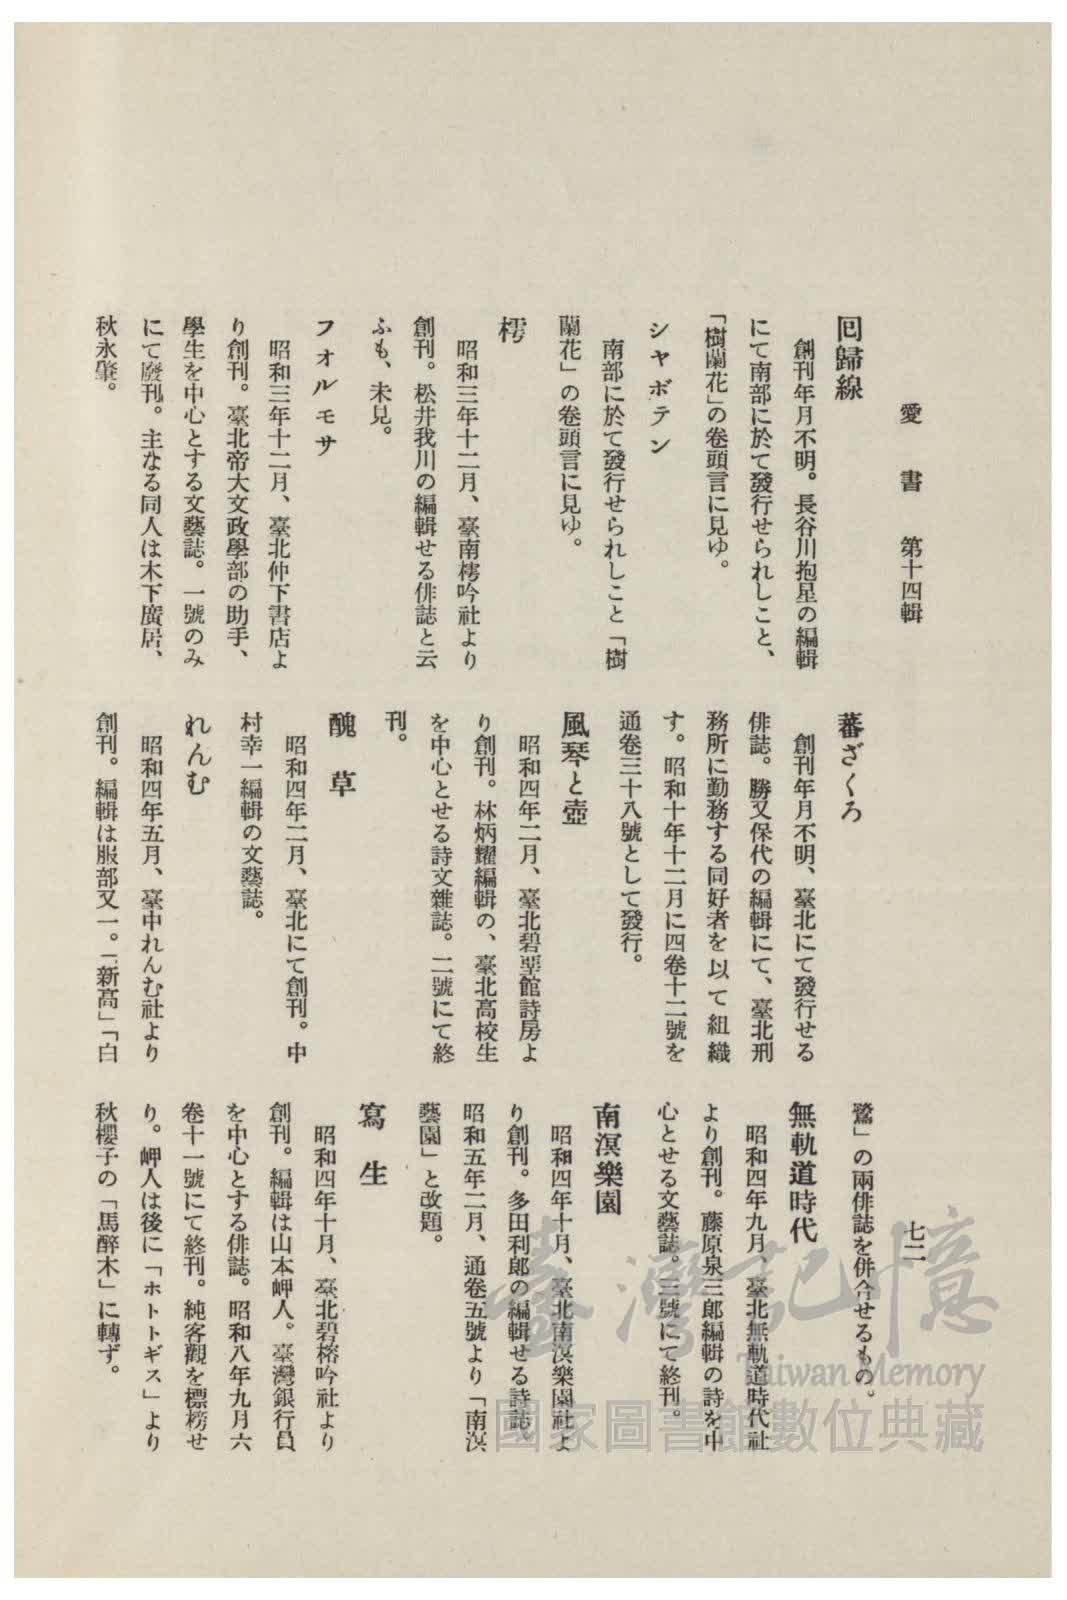 愛書 第十四輯
七二
囘歸線
創刊年月不明。長谷川抱星の編輯
にて南部に於て發行せられしこと、
「樹蘭花」の卷頭言に見ゆ。
シャボテン
南部に於て發行せられしこと「樹
蘭花」の卷頭言に見ゆ。
樗
昭和三年十二月、臺南樗吟社より
創刊。松井我川の編輯せる俳誌と云
ふも、未見。
フォルモサ
昭和三年十二月、臺北仲下書店よ
り創刊。臺北帝大文政學部の助手、
學生を中心とする文藝誌。一號のみ
にて廢刊。主なる同人は木下廣居、
秋永肇。
蕃ざくろ
創刊年月不明、臺北にて發行せる
俳誌。勝又保代の編輯にて、臺北刑
務所に勤務する同好者を以て組織
す。昭和十年十二月に四卷十二號を
通卷三十八號として發行。
風琴と壺
昭和四年二月、臺北碧翆館詩房よ
り創刊。林炳耀編輯の、臺北高校生
を中心とせる詩文雜誌。二號にて終
刊。
醜草
昭和四年二月、臺北にて創刊。中
村幸一編輯の文藝誌。
れんむ
昭和四年五月、臺中れんむ社より
創刊。編輯は服部又一。「新高」「白
鷺」の兩俳誌を併合せるもの。
無軌道時代
昭和四年九月、臺北無軌道時代社
より創刊。藤原泉三郎編輯の詩を中
心とせる文藝誌。三號にて終刊。
南溟樂園
昭和四年十月、臺北南溟樂園社よ
り創刊。多田利郎の編輯せる詩誌。
昭和五年二月、通卷五號より「南溟
藝園」と改題。
寫生
昭和四年十月、臺北碧榕吟社より
創刊。編輯は山本岬人。臺灣銀行員
を中心とする俳誌。昭和八年九月六
卷十一號にて終刊。純客觀を標榜せ
り。岬人は後に「ホトトギス」より
秋櫻子の「馬醉木」に轉ず。
臺灣記憶
Taiwan Memory
國家圖書館數位典藏